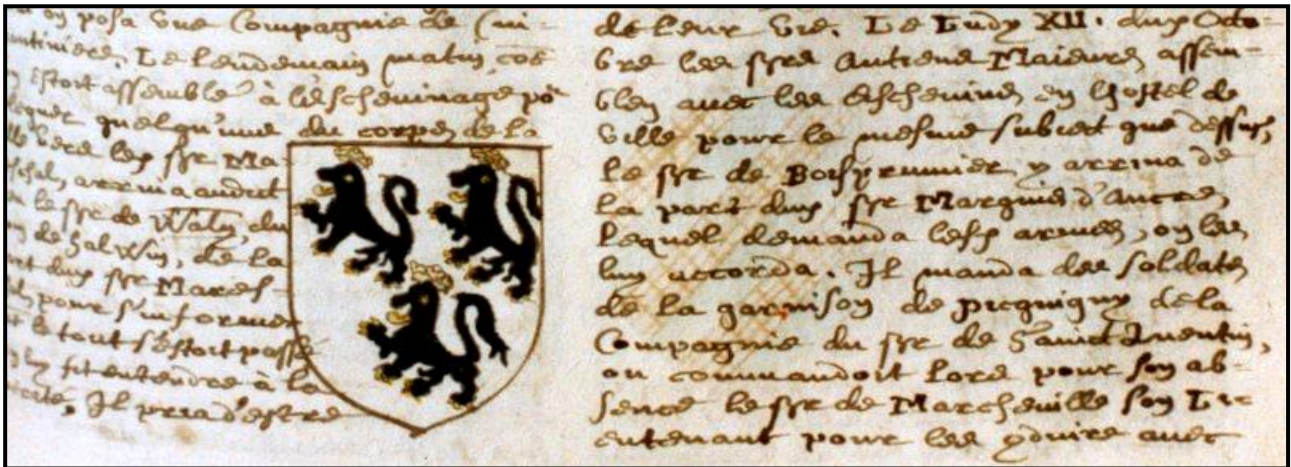 on posa une Compagnie de Cui-
antiniere. Le lendemain matin, coe
estoit assemblé à l'eschevinage po
quelqu'une du corps de la
vers les Sr Ma-
arriva audit
le sr de Waly, du
de Halwin, de la
dud sr Mares-
pour s'informer
le tout s'estoit passé
fit entendre à la
Il pria d'estre
de leur vie. Le Lundy XII. dud Octo-
bre les srs Antiens Maieurs assem-
blez avec les Eschevins en l'hostel de
ville pour le mesme subiect que dessus,
le sr de Boisprunnier y arriva de
la part dud sr Marquis d'Ancre,
lequel demanda lesd armes, on les
luy accorda. Il manda des soldats
de la garnison de Picquigny de la
Compagnie du sr de Sainct Quentin,
ou commandoit lors pour son ab-
sence le sr de Marcheville son Lie
utenant pour les conduire avec